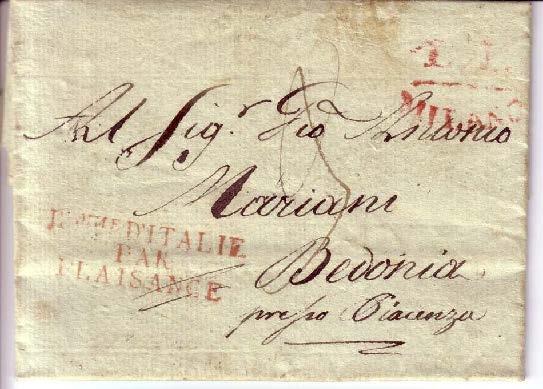 L.I.
MILANO
Al Sig.r Gio Antonio
Mariani
R.AUME D'ITALIE
PAR
PLAISANCE
Bedonia
presso Piacenza